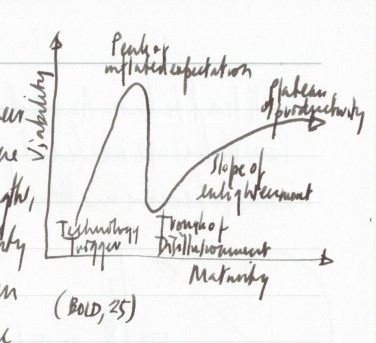 Peak of
inflated expectation
Plateau
of productivity
Visibility
Slope of
enlightenment
Technology
Trigger
Trough of
Disillusionment
Maturity
(BOLD, 25)